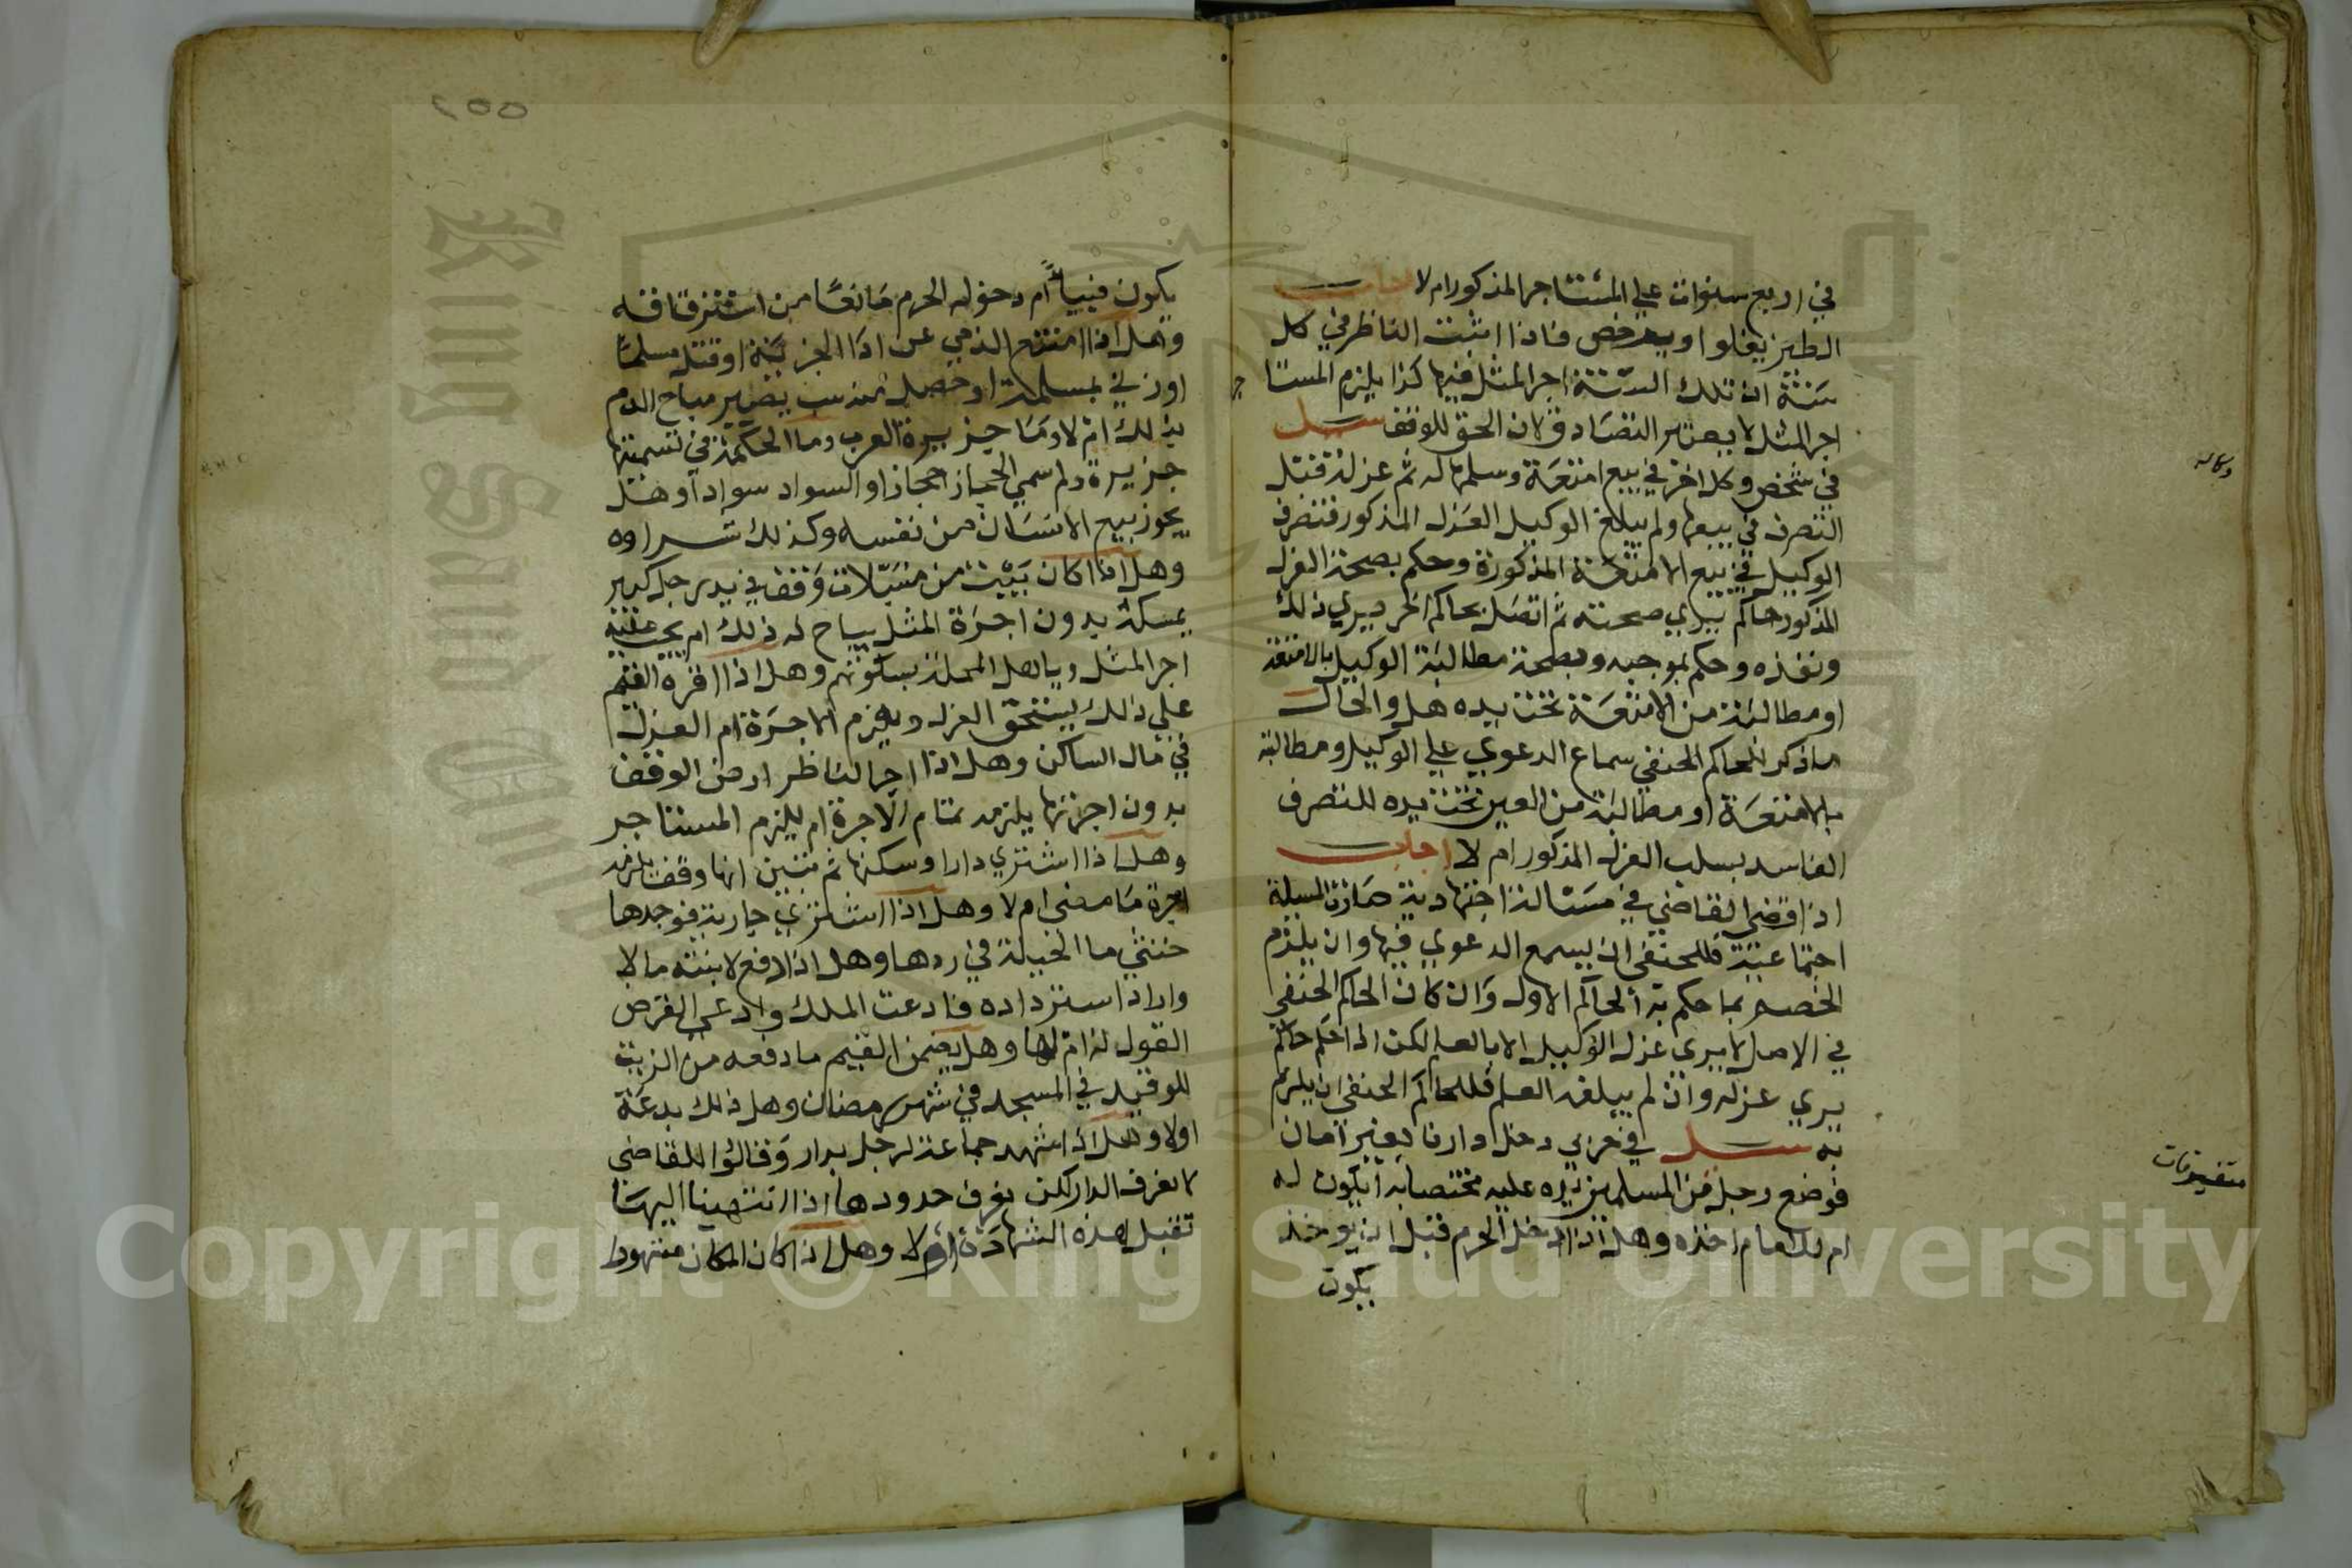 في اربع سنوات علي المستاجر المذكور ام لا اجاب
الطين يغلوا ويرخص فاذا اثبت الناظر في كل
سنة ان تلك السنة اجر المثل فيها كذا يلزم المستا
جر
اجر المثل لا يعتبر التصادق لان الحق للوقف سيل
وكاله
في شخص وكل اخر في بيع امتعة وسلمها له ثم عزله قبل
التصرف في بيعها ولم يبلغ الوكيل العزل المذكور فتصرف
الوكيل في بيع الامتعة المذكورة وحكم بصحة العزل
المذكور حاكم يري صحته ثم اتصل بحاكم اخر يري ذلك
ونفذه وحكم بموجبه وبصحة مطالبة الوكيل بالامتعة
او مطالبة من الامتعة تحت يده هل والحال
ماذكر للحاكم الحنفي سماع الدعوي علي الوكيل ومطالبته
بالامتعة او مطالبة من العين تحت يده للتصرف
الفاسد بسلب العزل المذكور ام لا اجاب
اذا قضي القاضي في مسالة اجتهادية صارت المسيلة
اجتماعية فللحنفي ان يسمع الدعوي فيها وان يلزم
الخصم بما حكم به الحاكم الاول وان كان الحاكم الحنفي
في الاصل لا يري عزل الوكيل الا بالعلم لكن اذا حكم حاكم
يري عزله وان لم يبلغه العلم فللحاكم الحنفي ان يلزم
به سيل في حربي دخل دارنا بغير امان
متفرقات
فوضع رجل من المسلمين يده عليه مختصا به ايكون له
ام للامام اخذه وهل اذا دخل الحرم قبل ان يوخذ
يكون
٢٥٥
يكون فيياً ام دخوله الحرم مانعا من استرقاقه
وهل اذا امتنع الذمي عن اداء الجزية او قتل مسلما
اوزني بمسلمة او حصل منه سب يصير مباح الدم
بذلك ام لا وما جزيرة العرب وما الحكمة في تسميتها
جزيرة ولم سمي الحجاز حجازا والسواد سوادا وهل
يجوز بيع الانسان من نفسه وكذلك شراوه
وهل اذا كان بيت من مسبلات وقف في يد رجل كبير
يمسكه بدون اجرة المثل يباح له ذلك ام يجب عليه
اجر المثل وياهل المحلة بسكوتهم وهل اذا اقره القيم
علي ذلك يستحق العزل ويلزم الاجرة ام العزل
في مال الساكن وهل اذا اجر الناظر ارض الوقف
بدون اجرتها يلزمه تمام الاجرة ام يلزم المستاجر
وهل اذا اشتري دارا وسكنها ثم تبين انها وقف يلزمه
اجرة ما مضي ام لا وهل اذا اشتري جارية فوجدها
خنثي ما الحيلة في ردها وهل اذا دفع لابنته مالا
واراد استرداده فادعت الملك وادعي القرض
القول له ام لها وهل يضمن القيم ما دفعه من الزيت
للوقيد في المسجد في شهر رمضان وهل ذلك بدعة
اولا وهل اذا شهد جماعة لرجل بدار وقالوا للقاضي
لا نعرف الدار لكن نعرف حدودها اذا انتهينا اليها
تقبل هذه الشهادة ام لا وهل اذا كان المكان مشهورا
King Saud University
Copyright © King Saud University